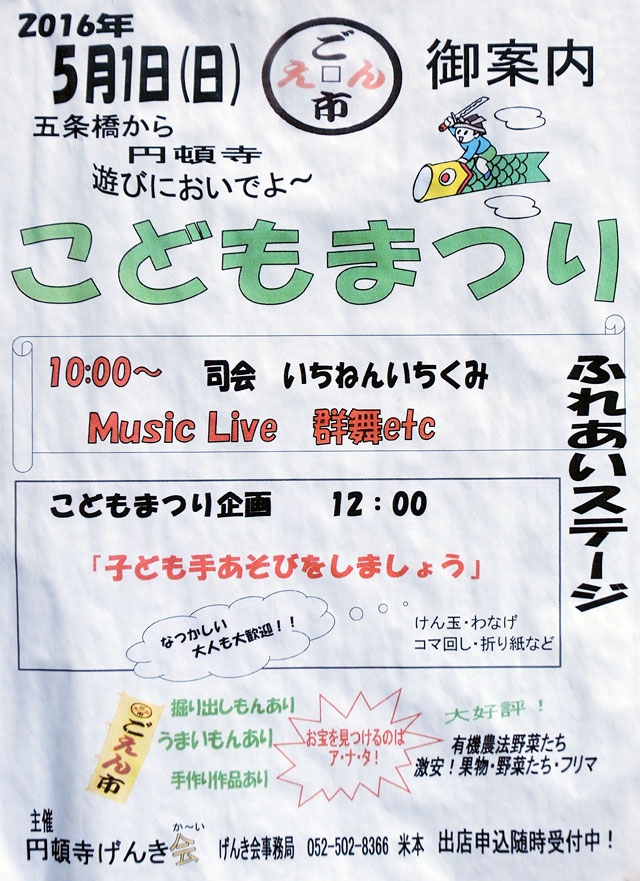 2016年
5月1日(日)
ごえん市
御案内
五条橋から
円頓寺
遊びにおいでよ～
こどもまつり
10:00～ 司会 いちねんいちくみ
Music Live 群舞etc
ふれあいステージ
こどもまつり企画 12：00
「子ども手あそびをしましょう」
なつかしい
大人も大歓迎！！
けん玉・わなげ
コマ回し・折り紙など
ごえん市
掘り出しもんあり
うまいもんあり
手作り作品あり
お宝を見つけるのは
ア・ナ・タ！
大好評！
有機農法野菜たち
激安！果物・野菜たち・フリマ
主催
か～い
円頓寺げんき会 げんき会事務局 052-502-8366 米本 出店申込随時受付中！